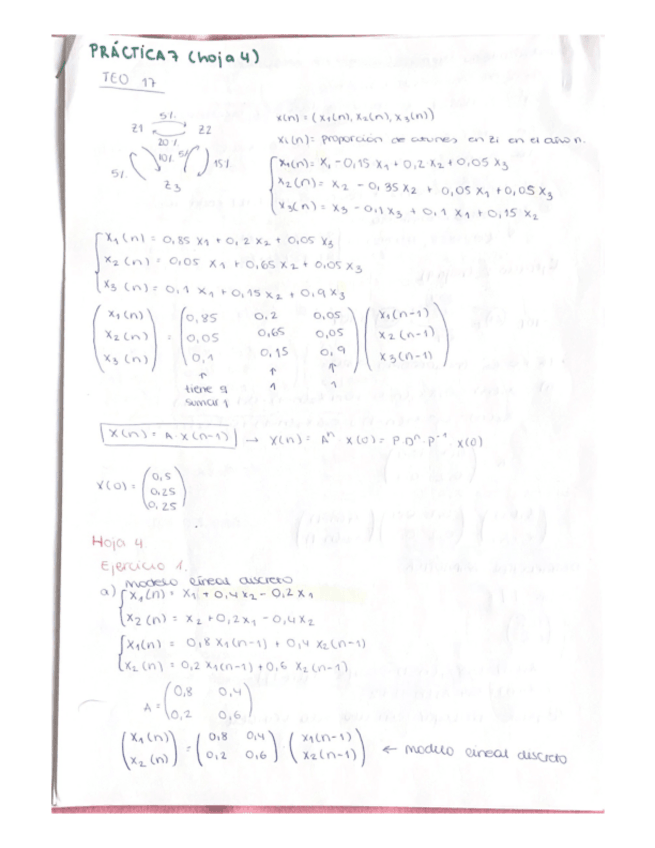 PRÁCTICA 7 (hoja 4)
TEO 17
5%
Z1 Z2
20%
5% 10% 5% 15%
Z3
x(n) = (x1(n), x2(n), x3(n))
xi(n) = proporción de atunes en Zi en el año n.
x1(n) = x1 - 0,15 x1 + 0,2 x2 + 0,05 x3
x2(n) = x2 - 0,35 x2 + 0,05 x1 + 0,05 x3
x3(n) = x3 - 0,1 x3 + 0,1 x1 + 0,15 x2
x1(n) = 0,85 x1 + 0,2 x2 + 0,05 x3
x2(n) = 0,05 x1 + 0,65 x2 + 0,05 x3
x3(n) = 0,1 x1 + 0,15 x2 + 0,9 x3
x1(n) 0,85 0,2 0,05 x1(n-1)
x2(n) = 0,05 0,65 0,05 x2(n-1)
x3(n) 0,1 0,15 0,9 x3(n-1)
↑ ↑ ↑
tiene q 1 1
sumar 1
X(n) = A · X(n-1) → X(n) = Aⁿ · X(0) = P · Dⁿ · P⁻¹ · X(0)
0,5
X(0) = 0,25
0,25
Hoja 4.
Ejercicio 1.
modelo lineal discreto
a) x1(n) = x1 + 0,4 x2 - 0,2 x1
x2(n) = x2 + 0,2 x1 - 0,4 x2
x1(n) = 0,8 x1(n-1) + 0,4 x2(n-1)
x2(n) = 0,2 x1(n-1) + 0,6 x2(n-1)
A = 0,8 0,4
0,2 0,6
x1(n) = 0,8 0,4 · x1(n-1)
x2(n) 0,2 0,6 x2(n-1) ← modelo lineal discreto